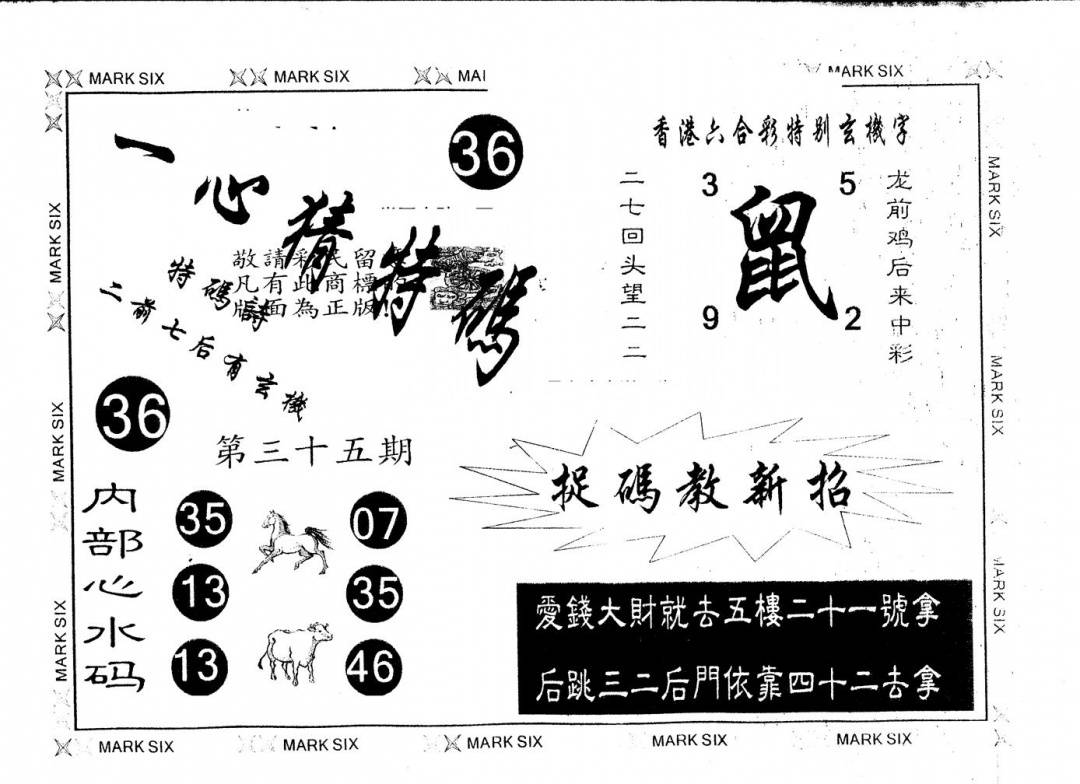 MARK SIX
MARK SIX
MAI
MARK SIX
一心猜特碼
36
敬請彩民留
凡有此商標
版面為正版!
特碼詩
二前七后有玄機
36
第三十五期
内部心水码
35
07
13
35
13
46
香港六合彩特别玄機字
二七回头望二二
3
5
鼠
9
2
龙前鸡后来中彩
捉碼教新招
愛錢大財就去五樓二十一號拿
后跳三二后門依靠四十二去拿
MARK SIX
MARK SIX
MARK SIX
MARK SIX
MARK SIX
MARK SIX
MARK SIX
MARK SIX
MARK SIX
MARK SIX
MARK SIX